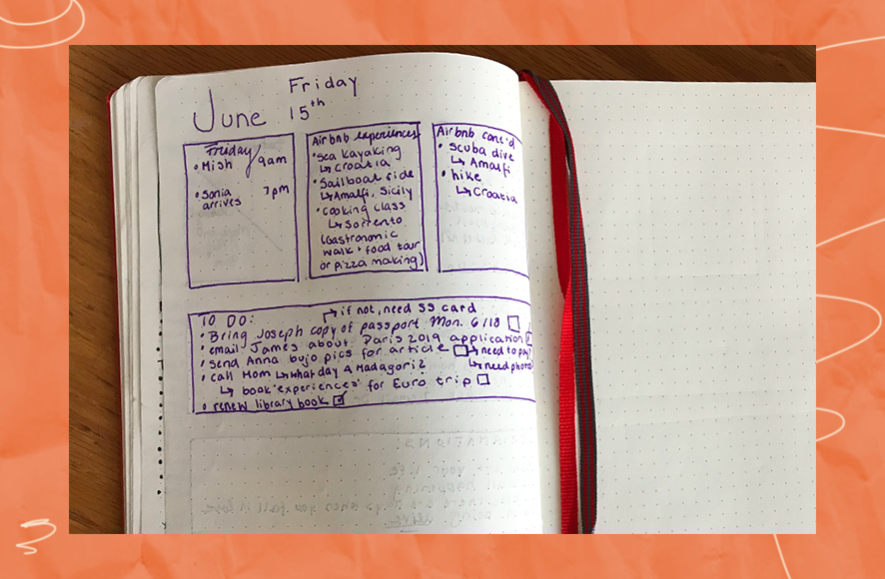 June Friday
15th
Friday
• Mish 9am
• Sonia 7pm
arrives
Airbnb experiences
• Sea kayaking
↳ Croatia
• Sailboat ride
↳ Amalfi, Sicily
• cooking class
↳ Sorrento
(Gastronomic
walk + food tour
or pizza making)
Airbnb cont'd
• scuba dive
↳ Amalfi
• hike
↳ Croatia
TO DO: if not, need SS card
• Bring Joseph copy of passport Mon. 6/18
• email James about Paris 2019 application
• send Anna bujo pics for article ↳ need to pay?
• call Mom ↳ what day 4 ↳ need phone
↳ book 'experiences' for Euro trip
• renew library book